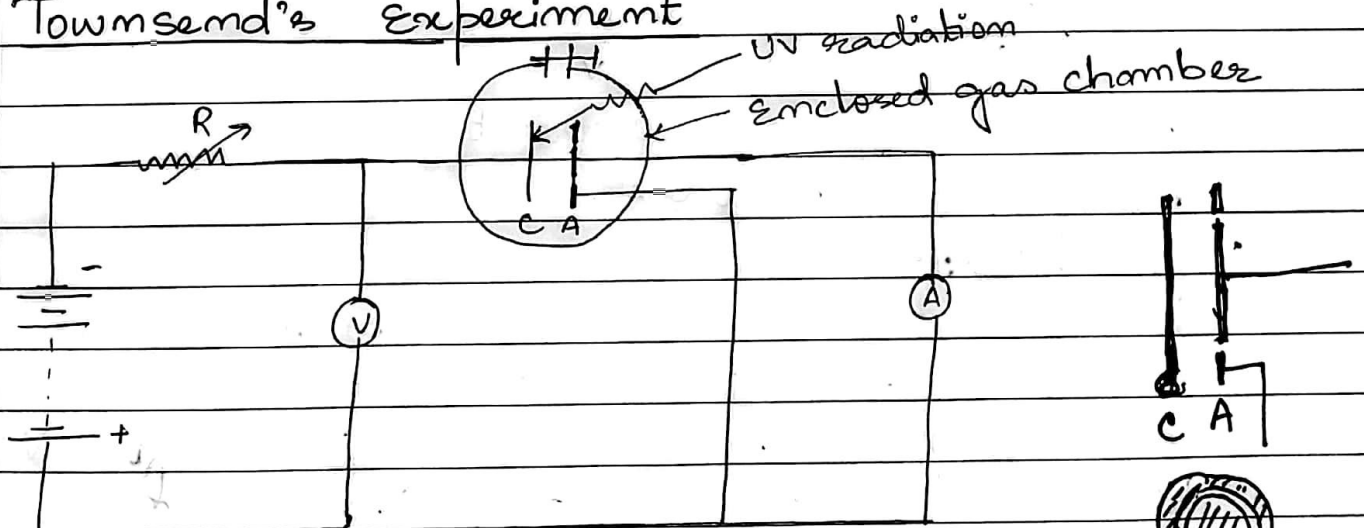 Townsend's Experiment
UV radiation
Enclosed gas chamber
R
C A
-
V
A
+
C A